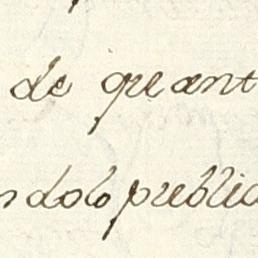 de quant
ndolo public